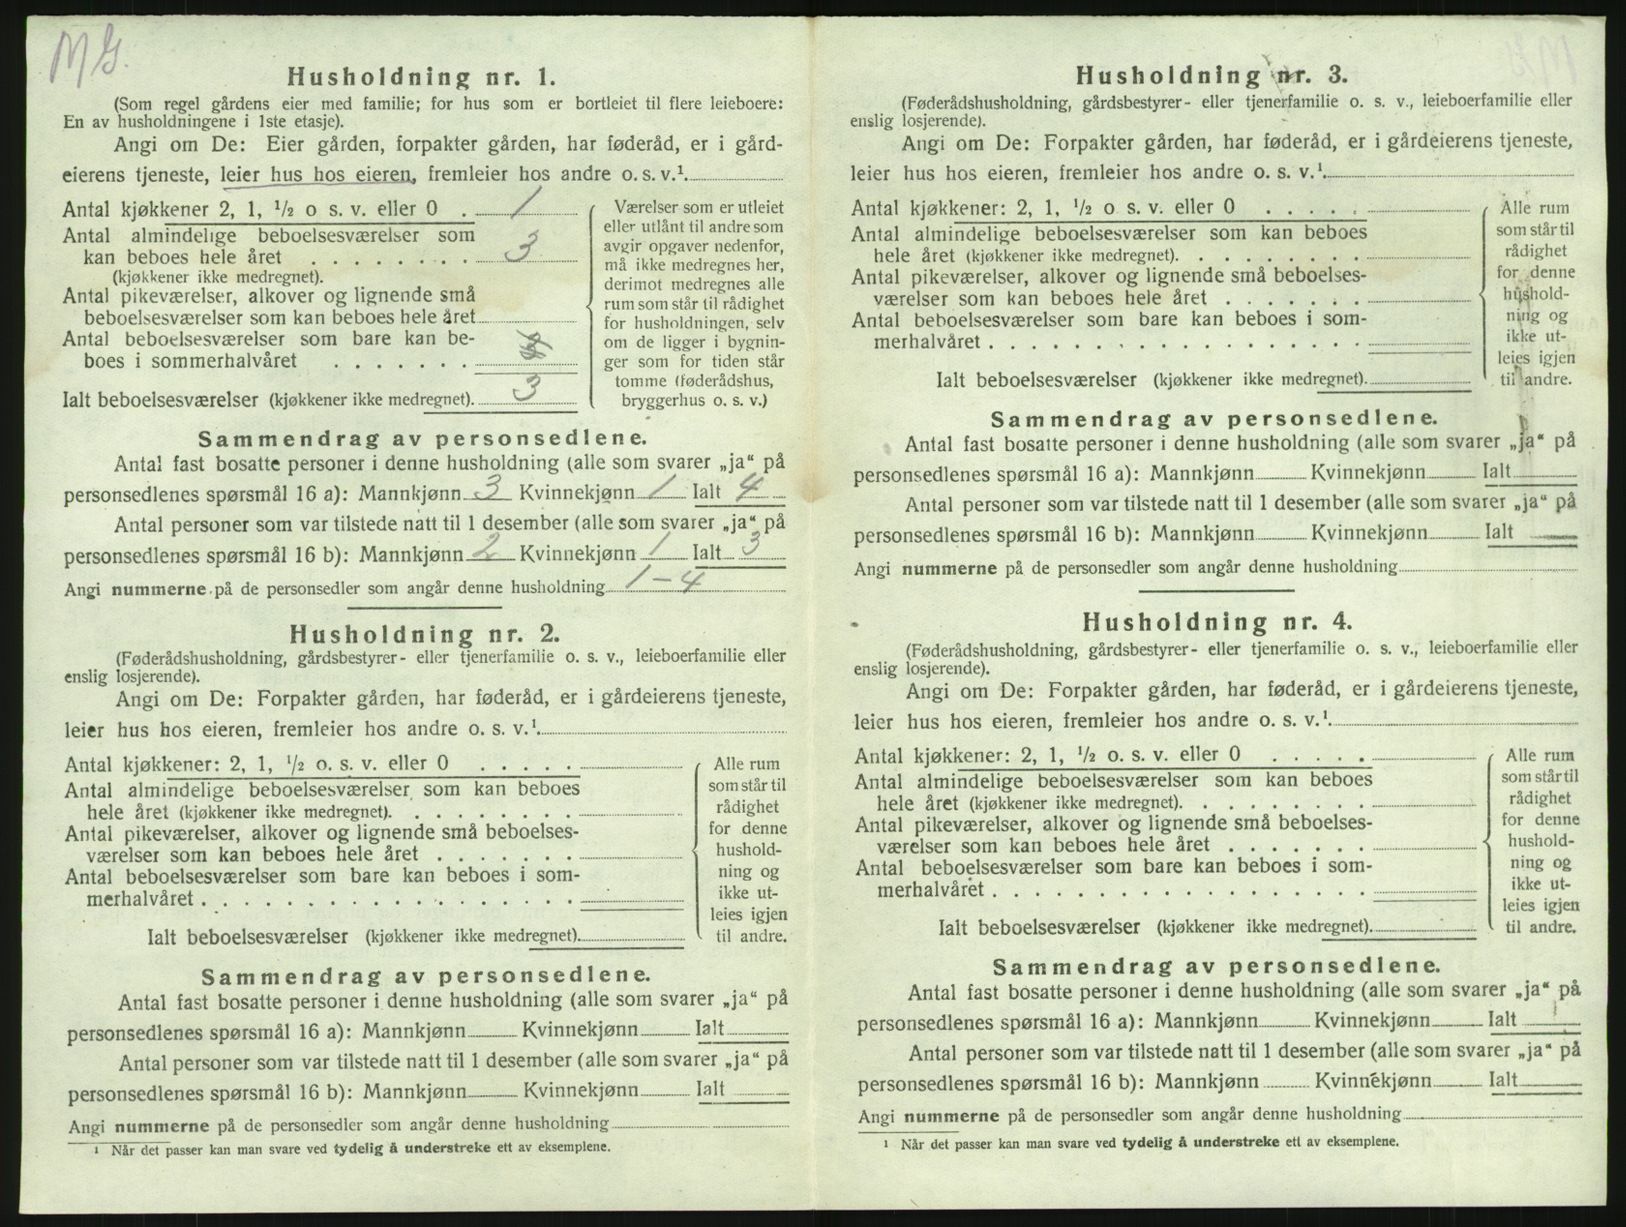 MG.
Husholdning nr. 1.
(Som regel gårdens eier med familie; for hus som er bortleiet til flere leieboere:
En av husholdningene i 1ste etasje).
Angi om De: Eier gården, forpakter gården, har føderåd, er i gård-
eierens tjeneste, leier hus hos eieren, fremleier hos andre o. s. v.¹.
Antal kjøkkener 2, 1, ½ o s. v. eller 0 . 1
Antal almindelige beboelsesværelser som
kan beboes hele året . . . . . . . . 3
(kjøkkener ikke medregnet).
Antal pikeværelser, alkover og lignende små
beboelsesværelser som kan beboes hele året
Antal beboelsesværelser som bare kan be-
boes i sommerhalvåret . . . . . . .
Ialt beboelsesværelser (kjøkkener ikke medregnet). 3
Værelser som er utleiet
eller utlånt til andre som
avgir opgaver nedenfor,
må ikke medregnes her,
derimot medregnes alle
rum som står til rådighet
for husholdningen, selv
om de ligger i bygnin-
ger som for tiden står
tomme (føderådshus,
bryggerhus o. s. v.)
Sammendrag av personsedlene.
Antal fast bosatte personer i denne husholdning (alle som svarer „ja“ på
personsedlenes spørsmål 16 a): Mannkjønn 3 Kvinnekjønn 1 Ialt 4
Antal personer som var tilstede natt til 1 desember (alle som svarer „ja“ på
personsedlenes spørsmål 16 b): Mannkjønn 2 Kvinnekjønn 1 Ialt 3
Angi nummerne på de personsedler som angår denne husholdning 1-4
Husholdning nr. 2.
(Føderådshusholdning, gårdsbestyrer- eller tjenerfamilie o. s. v., leieboerfamilie eller
enslig losjerende).
Angi om De: Forpakter gården, har føderåd, er i gårdeierens tjeneste,
leier hus hos eieren, fremleier hos andre o. s. v.¹.
Antal kjøkkener: 2, 1, ½ o. s. v. eller 0 . . . . .
Antal almindelige beboelsesværelser som kan beboes
hele året (kjøkkener ikke medregnet). . . . . . . . .
Antal pikeværelser, alkover og lignende små beboelses-
værelser som kan beboes hele året . . . . . . .
Antal beboelsesværelser som bare kan beboes i som-
merhalvåret . . . . . . . . . . . . . . . . . .
Ialt beboelsesværelser (kjøkkener ikke medregnet).
Alle rum
som står til
rådighet
for denne
hushold-
ning og
ikke ut-
leies igjen
til andre.
Sammendrag av personsedlene.
Antal fast bosatte personer i denne husholdning (alle som svarer „ja“ på
personsedlenes spørsmål 16 a): Mannkjønn Kvinnekjønn Ialt
Antal personer som var tilstede natt til 1 desember (alle som svarer „ja“ på
personsedlenes spørsmål 16 b): Mannkjønn Kvinnekjønn Ialt
Angi nummerne på de personsedler som angår denne husholdning
¹ Når det passer kan man svare ved tydelig å understreke ett av eksemplene.
Husholdning nr. 3.
(Føderådshusholdning, gårdsbestyrer- eller tjenerfamilie o. s. v., leieboerfamilie eller
enslig losjerende).
Angi om De: Forpakter gården, har føderåd, er i gårdeierens tjeneste,
leier hus hos eieren, fremleier hos andre o. s. v.¹.
Antal kjøkkener: 2, 1, ½ o s. v. eller 0 . . . . .
Antal almindelige beboelsesværelser som kan beboes
hele året (kjøkkener ikke medregnet). . . . . . . . .
Antal pikeværelser, alkover og lignende små beboelses-
værelser som kan beboes hele året . . . . . . .
Antal beboelsesværelser som bare kan beboes i som-
merhalvåret . . . . . . . . . . . . . . . . . .
Ialt beboelsesværelser (kjøkkener ikke medregnet).
Alle rum
som står til
rådighet
for denne
hushold-
ning og
ikke ut-
leies igjen
til andre.
Sammendrag av personsedlene.
Antal fast bosatte personer i denne husholdning (alle som svarer „ja“ på
personsedlenes spørsmål 16 a): Mannkjønn Kvinnekjønn Ialt
Antal personer som var tilstede natt til 1 desember (alle som svarer „ja“ på
personsedlenes spørsmål 16 b): Mannkjønn Kvinnekjønn Ialt
Angi nummerne på de personsedler som angår denne husholdning
Husholdning nr. 4.
(Føderådshusholdning, gårdsbestyrer- eller tjenerfamilie o. s. v., leieboerfamilie eller
enslig losjerende).
Angi om De: Forpakter gården, har føderåd, er i gårdeierens tjeneste,
leier hus hos eieren, fremleier hos andre o. s. v.¹.
Antal kjøkkener: 2, 1, ½ o. s. v. eller 0 . . . . .
Antal almindelige beboelsesværelser som kan beboes
hele året (kjøkkener ikke medregnet). . . . . . . . .
Antal pikeværelser, alkover og lignende små beboelses-
værelser som kan beboes hele året . . . . . . .
Antal beboelsesværelser som bare kan beboes i som-
merhalvåret . . . . . . . . . . . . . . . . . .
Ialt beboelsesværelser (kjøkkener ikke medregnet).
Alle rum
som står til
rådighet
for denne
hushold-
ning og
ikke ut-
leies igjen
til andre.
Sammendrag av personsedlene.
Antal fast bosatte personer i denne husholdning (alle som svarer „ja“ på
personsedlenes spørsmål 16 a): Mannkjønn Kvinnekjønn Ialt
Antal personer som var tilstede natt til 1 desember (alle som svarer „ja“ på
personsedlenes spørsmål 16 b): Mannkjønn Kvinnekjønn Ialt
Angi nummerne på de personsedler som angår denne husholdning
¹ Når det passer kan man svare ved tydelig å understreke ett av eksemplene.